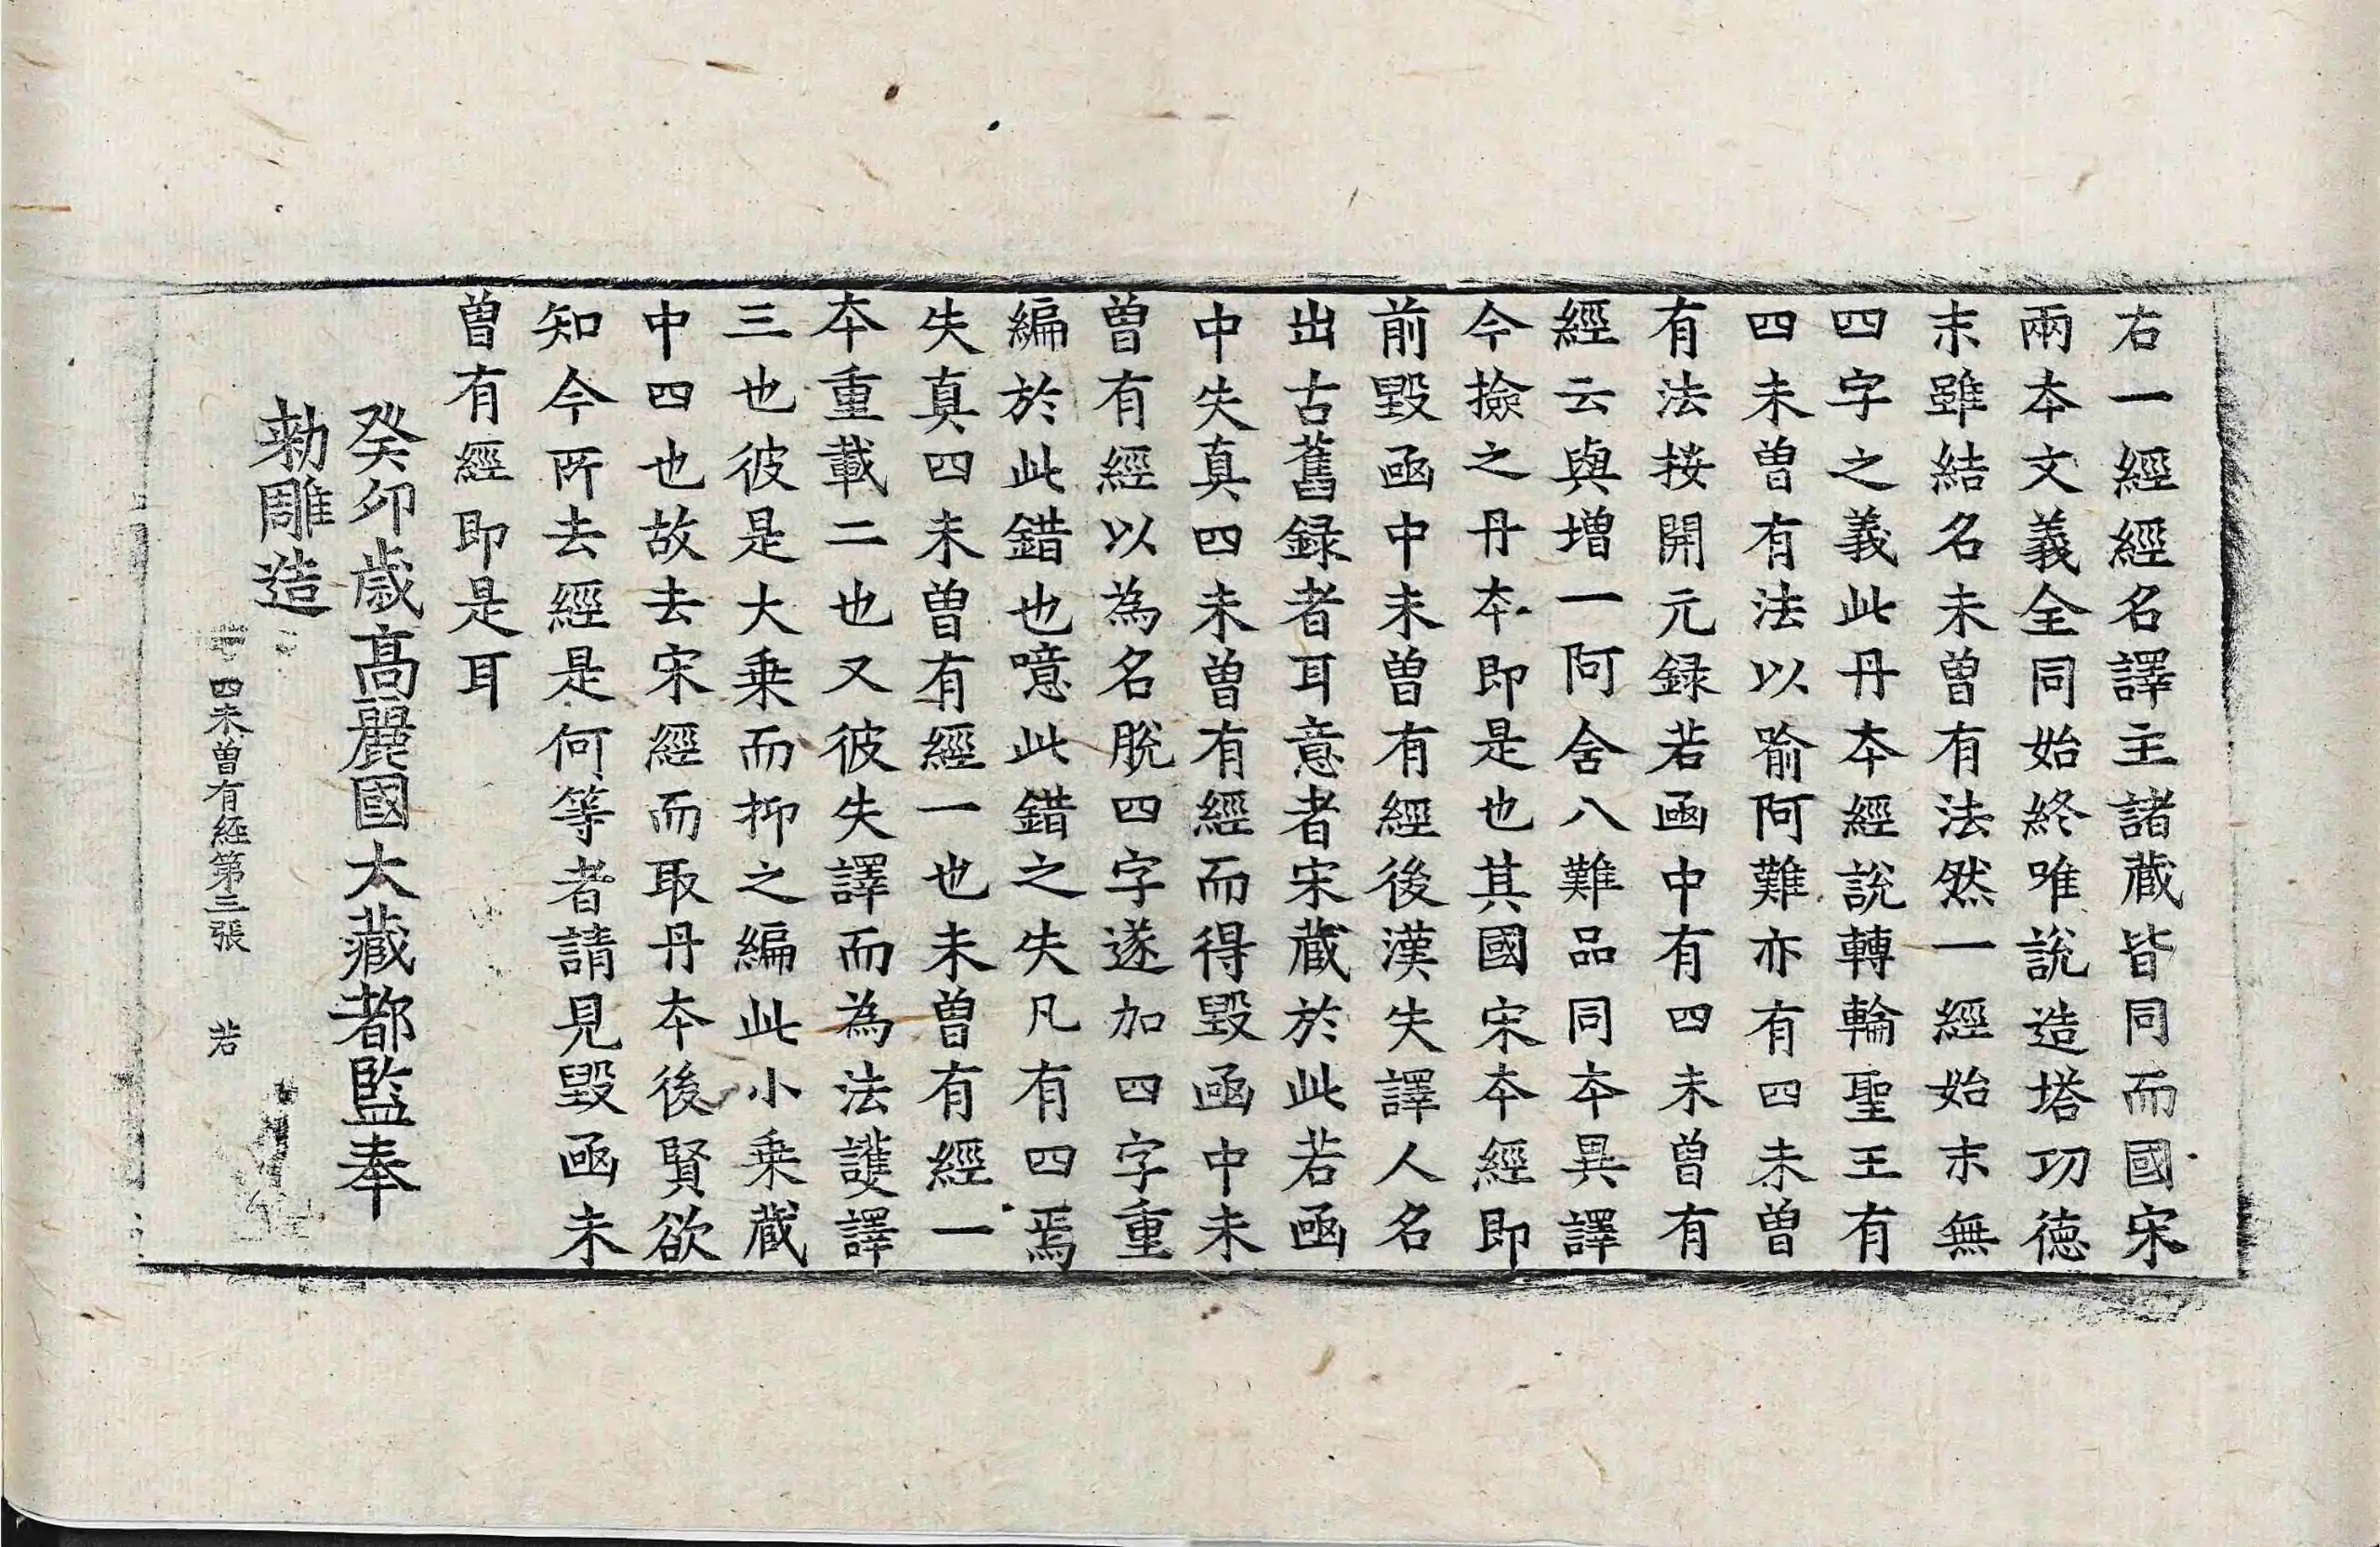 右一經經名譯主諸蔵皆同而國宋
兩夲文義全同始終唯説造塔功徳
末雖結名未曽有法然一經始末無
四字之義此丹夲經說轉輪聖王有
四未曽有法以喻阿難亦有四未曽
有法按開元録若函中有四未曽有
經云與增一阿含八難品同夲異譯
今撿之丹夲即是也其國宋夲經即
前毀函中未曽有經後漢失譯人名
出古舊録者耳意者宋蔵於此若函
中失真四未曽有經而得毀函中未
曽有經以為名脫四字遂加四字重
編於此錯也噫此錯之失凡有四焉
失真四未曽有經一也未曽有經一
夲重載二也又彼失譯而為法護譯
三也彼是大乗而抑之編此小乗蔵
中四也故去宋經而取丹夲後賢欲
知今所去經是何等者請見毀函未
曽有經即是耳
癸卯歳髙麗國大藏都監奉
勑雕造
四未曽有經第三張 若